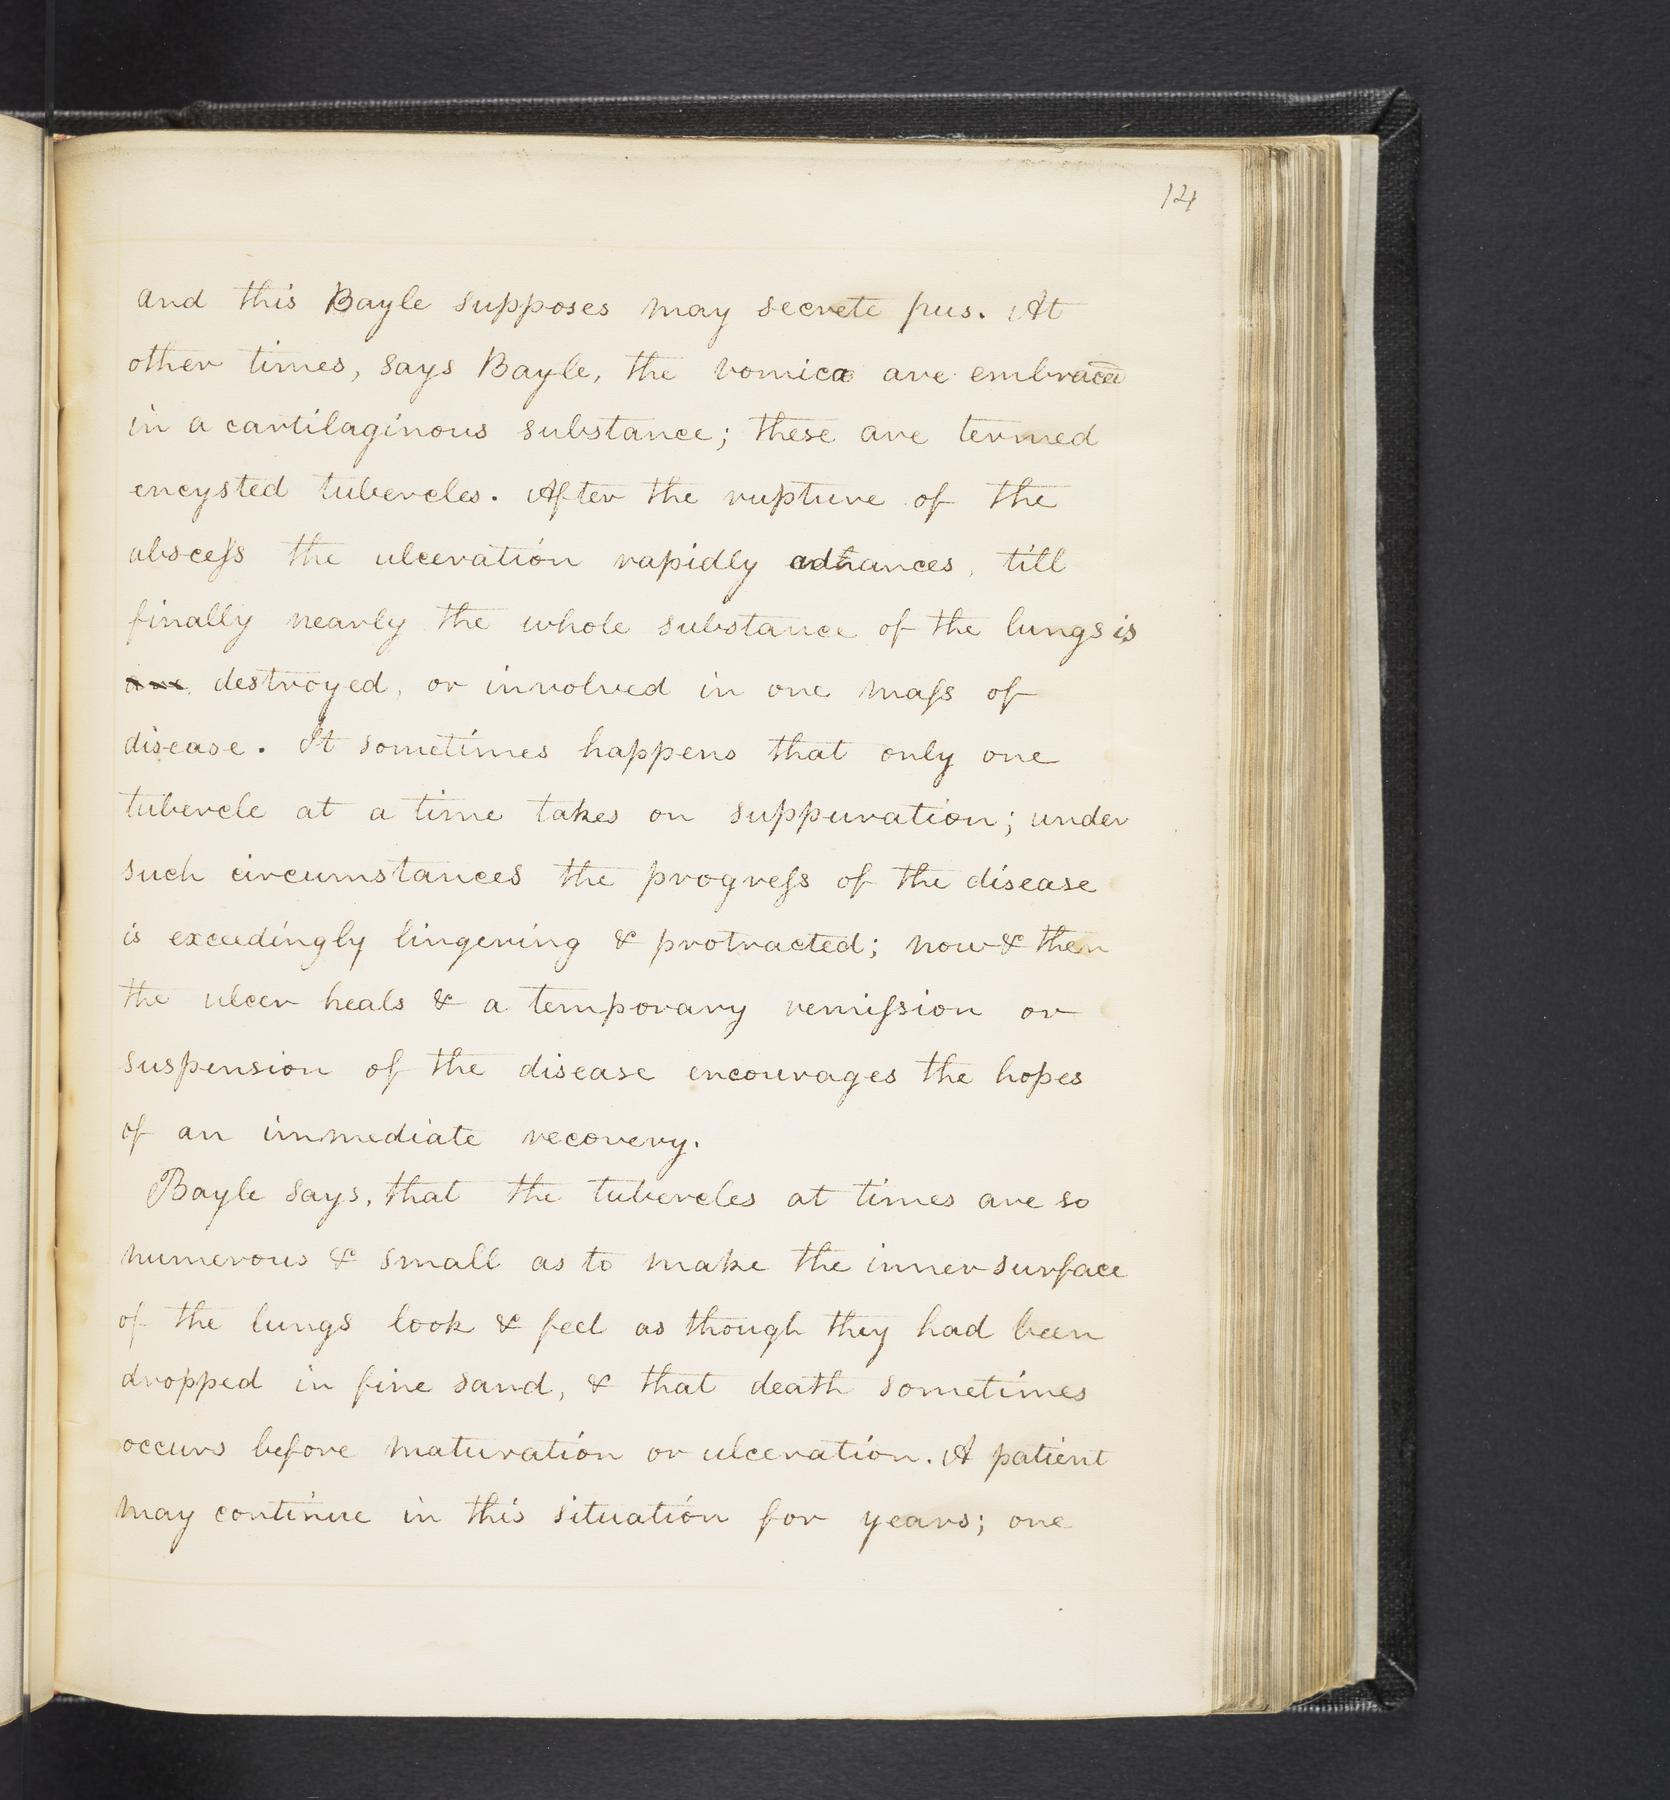 14
and this Bayle supposes may secrete pus. At
other times, says Bayle, the vomica are embraced
in a cartilaginous substance; these are termed
encysted tubercles. After the rupture of the
abscess the ulceration rapidly advances, till
finally nearly the whole substance of the lungs is
are destroyed, or involved in one mass of
disease. It sometimes happens that only one
tubercle at a time takes on suppuration; under
such circumstances the progress of the disease
is exceedingly lingering & protracted; now & then
the ulcer heals & a temporary remission or
suspension of the disease encourages the hopes
of an immediate recovery.
Bayle says, that the tubercles at times are so
numerous & small as to make the inner surface
of the lungs look & feel as though they had been
dropped in fine sand, & that death sometimes
occurs before maturation or ulceration. A patient
may continue in this situation for years; one